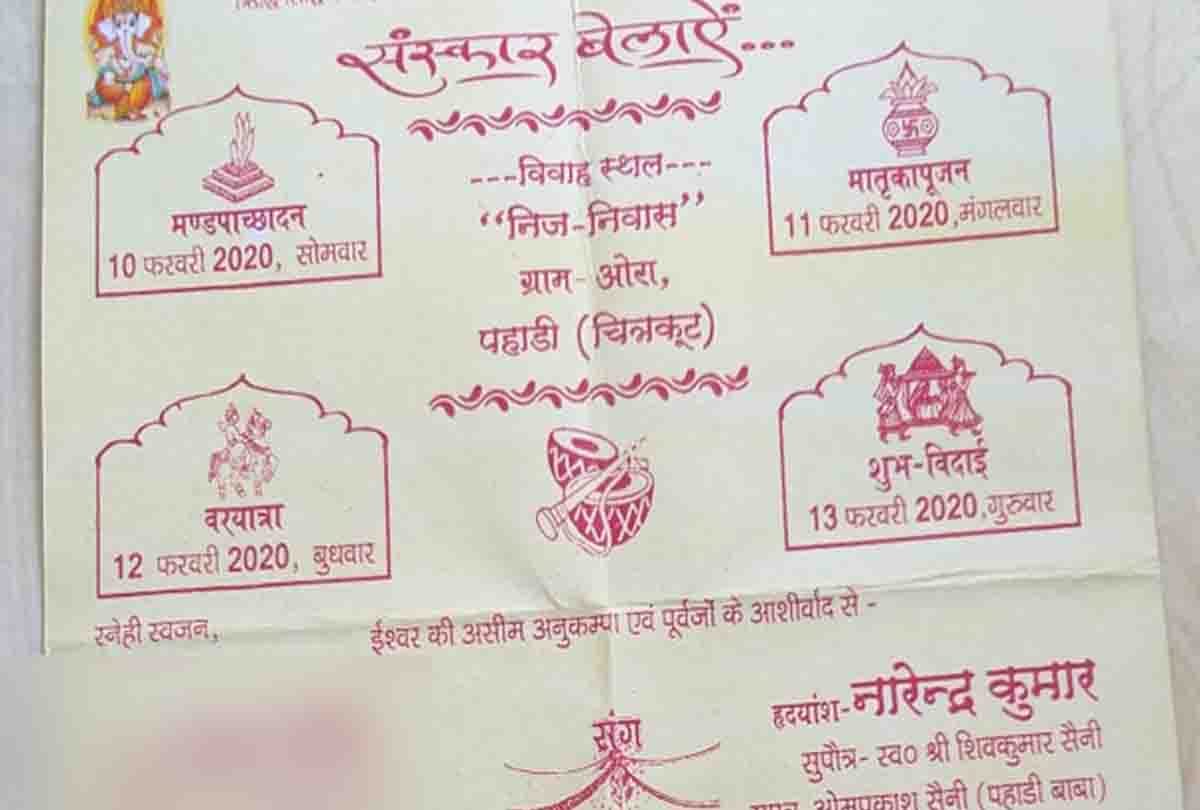 संस्कार बेलाऐं...
---विवाह स्थल---
“निज-निवास”
ग्राम- ओरा,
पहाडी (चित्रकूट)
मण्डपाच्छादन
10 फरवरी 2020, सोमवार
मातृकापूजन
11 फरवरी 2020,मंगलवार
वरयात्रा
12 फरवरी 2020, बुधवार
शुभ-विदाई
13 फरवरी 2020,गुरुवार
स्नेही स्वजन,
ईश्वर की असीम अनुकम्पा एवं पूर्वजों के आशीर्वाद से -
संग
हृदयांश-नारेन्द्र कुमार
सुपौत्र- स्व० श्री शिवकुमार सैनी
ओमप्रकाश सैनी (पहाडी बाबा)